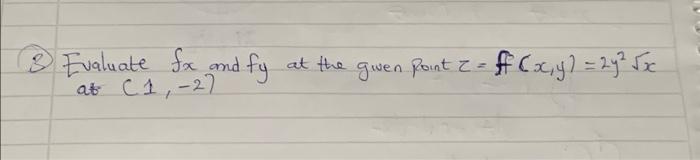 ③ Evaluate fx and fy at the given point z = f(x,y) = 2y² √x
at (1, -2)